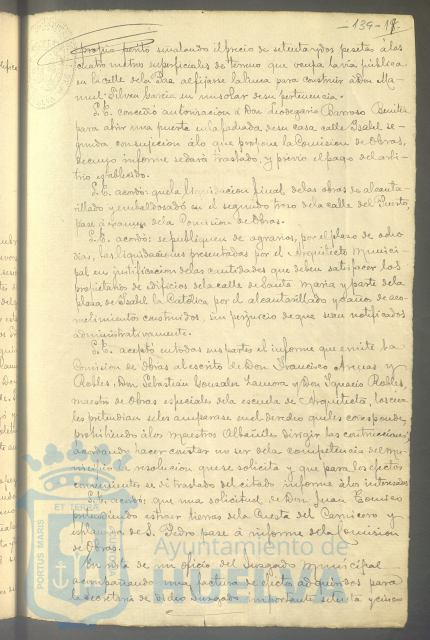 - 139 - 1ª
propio perito señalando el precio de setenta y dos pesetas á los
cuatro metros superficiales de terreno que ocupa la vía pública
en la calle de la Paz al fijarse la línea para construir á Don Ma-
nuel Silven García en un solar de su pertenencia.
S.E. concedió autorización á Don Leodegario Barroso Benitez
para abrir una puerta en la fachada de su casa calle Isabel se-
gunda con sujeción á lo que propone la Comisión de Obras,
de cuyo informe se dará traslado, y previo el pago del arbi-
trio establecido.
S.E. acordó: que la liquidación final de las obras de alcanta-
rillado y embaldosado en el segundo trozo de la calle del Puerto,
pase á examen de la Comisión de Obras.
S.E. acordó: se publiquen de agravios, por el plazo de ocho
días, las liquidaciones presentadas por el Arquitecto Munici-
pal en justificación de las cantidades que deben satisfacer los
propietarios de edificios de la calle de Santa María y parte de la
plaza de Isabel la Católica por el alcantarillado y daños de aco-
metimientos construidos, sin perjuicio de que sean notificados
administrativamente.
S.E. aceptó en todas sus partes el informe que emite la
Comisión de Obras al escrito de Don Francisco Arenas y
Robles, Don Sebastián Gonzalez Zamora y Don Ignacio Robles,
maestros de Obras especiales de la escuela de Arquitecto, los cua-
les pretendían se les amparase en el derecho que les corresponde,
prohibiendo á los Maestros Albañiles dirigir las construcciones;
acordando hacer constar no ser de la competencia del Mu-
nicipio la resolución que se solicita y que para los efectos
convenientes se dé traslado del citado informe á los interesados
S.E. acordó: que una solicitud de Don Juan
pretendiendo extraer tierras de la Cuesta del Carnicero y
de S. Pedro pase á informe de la Comisión
de Obras.
En vista de un oficio del Juzgado Municipal
acompañando una factura de efectos adquiridos para
la Secretaría de dicho Juzgado importante setenta y cinco
PORTUS MARIS
ET TERRÆ
Ayuntamiento de
HUELVA